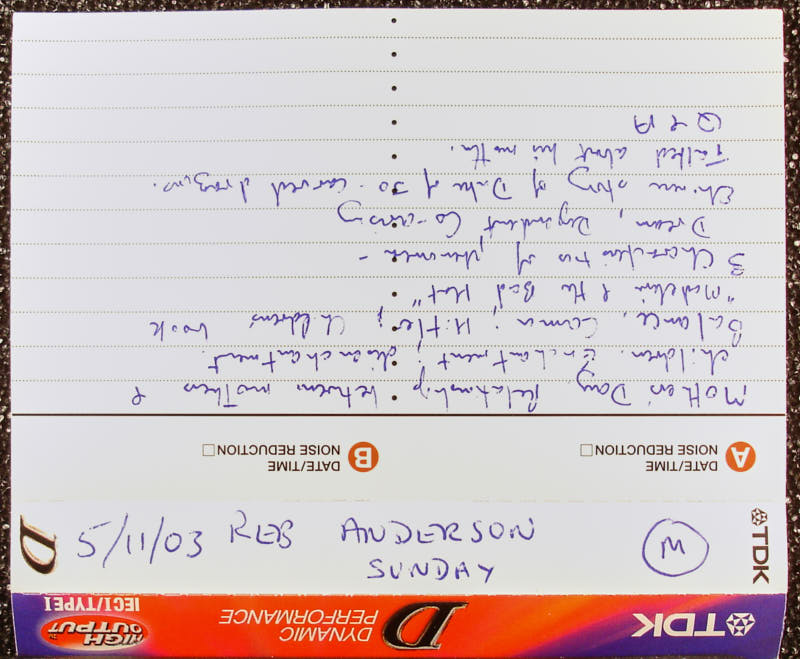 Mother's Day, Relationship between mothers &
children. Enchantment; disenchantment.
Balance, Camus; Hitler; Childrens' book
"Madeline & the Bad Hat"
3 Characteristics of phenomena -
Dream, Dependent Co-arising
Chinese story of Duke of Jo - carved dragons.
Talked about his moth.
Q & A
A DATE/TIME
NOISE REDUCTION
B DATE/TIME
NOISE REDUCTION
D 5/11/03 REB ANDERSON
SUNDAY
M
TDK
TDK
D DYNAMIC
PERFORMANCE
HIGH
OUTPUT
IECI/TYPE I